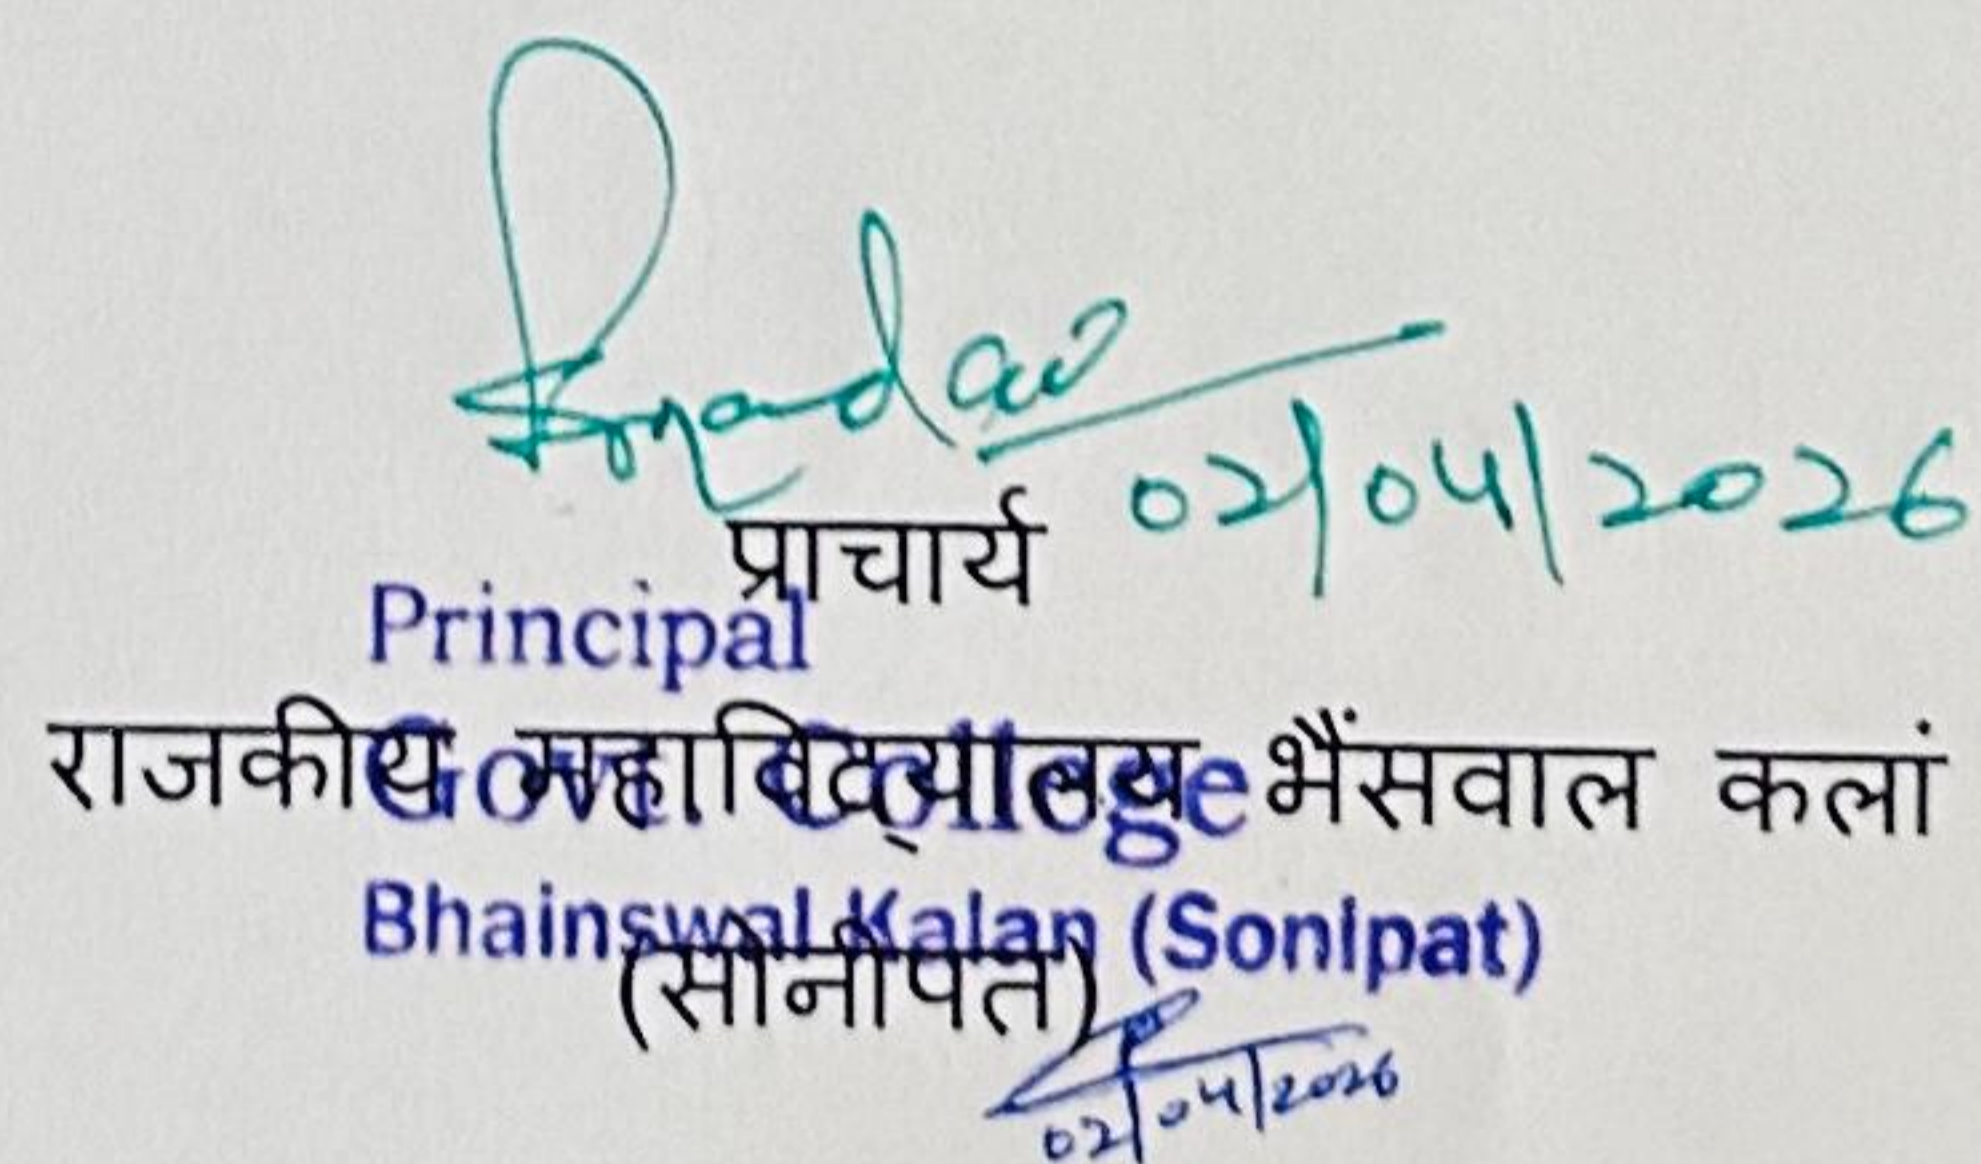 02/04/2026
प्राचार्य
Principal
राजकीय महाविद्यालय भैंसवाल कलां
Govt. College
Bhainswal Kalan (Sonipat)
(सोनीपत)
02/04/2026